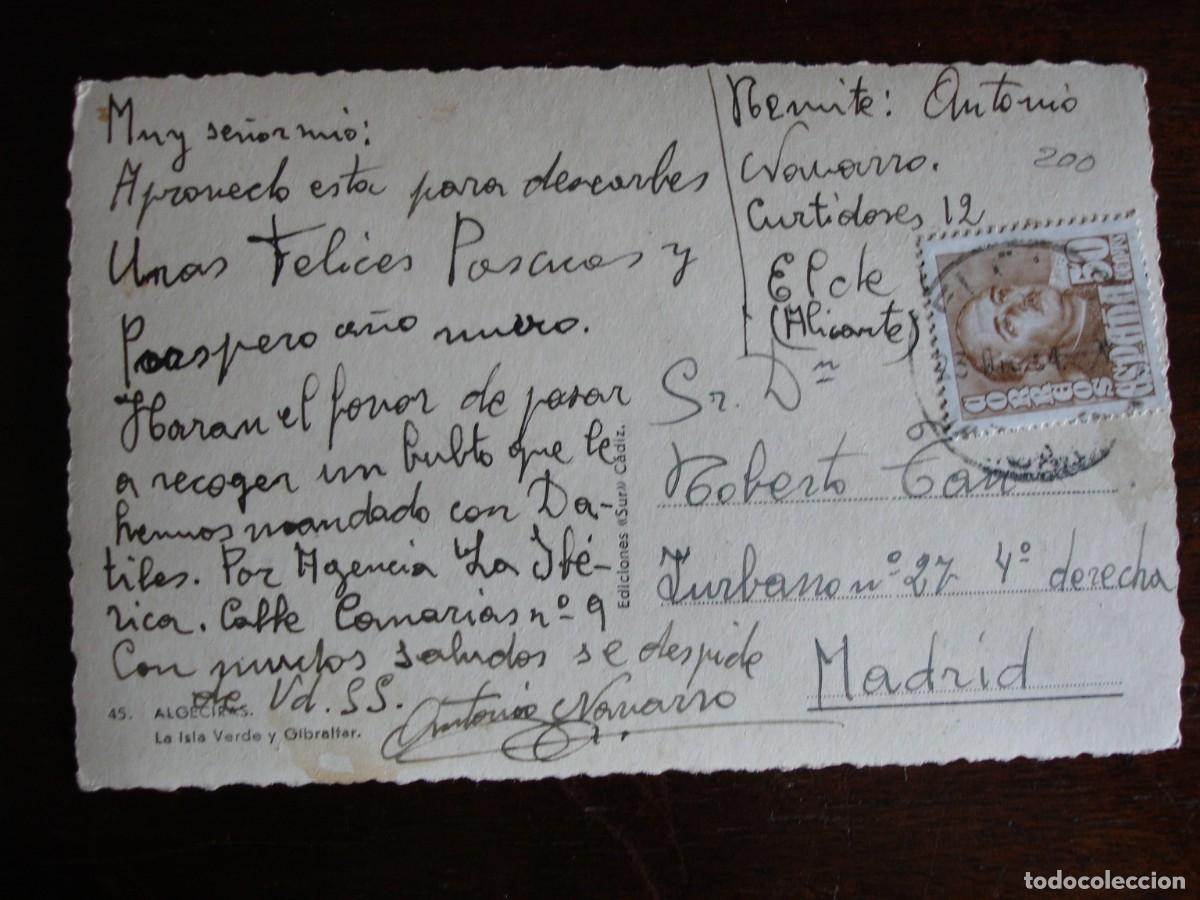 Muy señor mio:
Aprovecho esta para desearles
Unas Felices Pascuas y
Prospero año nuevo.
Haran el favor de pasar
a recoger un bulto que le
hemos mandado con Da-
tiles. Por Agencia "La Ibé-
rica. Calle Canarias nº 9
Con muchos saludos se despide
de Vd. SS.
Antonio Navarro
45. ALGECIRAS.
La Isla Verde y Gibraltar.
Ediciones «Sur» Cádiz.
Remite: Antonio
Navarro.
200
Curtidores 12
Elche
(Alicante)
50
CENTS
CORREOS
ESPAÑA
Sr. Dn
Roberto
Zurbano nº 27 4º derecha
Madrid
todocoleccion